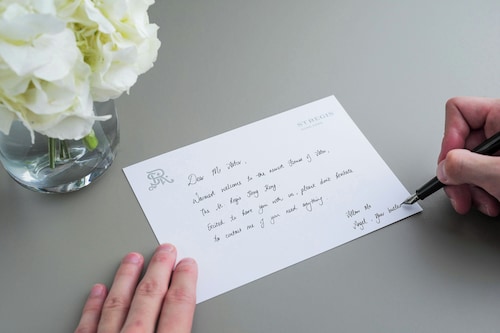 ST REGIS
Dear Mr
Warmest welcomes to the newest House of Astor,
The St. Regis Hong Kong
Excited to have you with us, please don't hesitate
to contact me if you need anything
Angel, Your butler